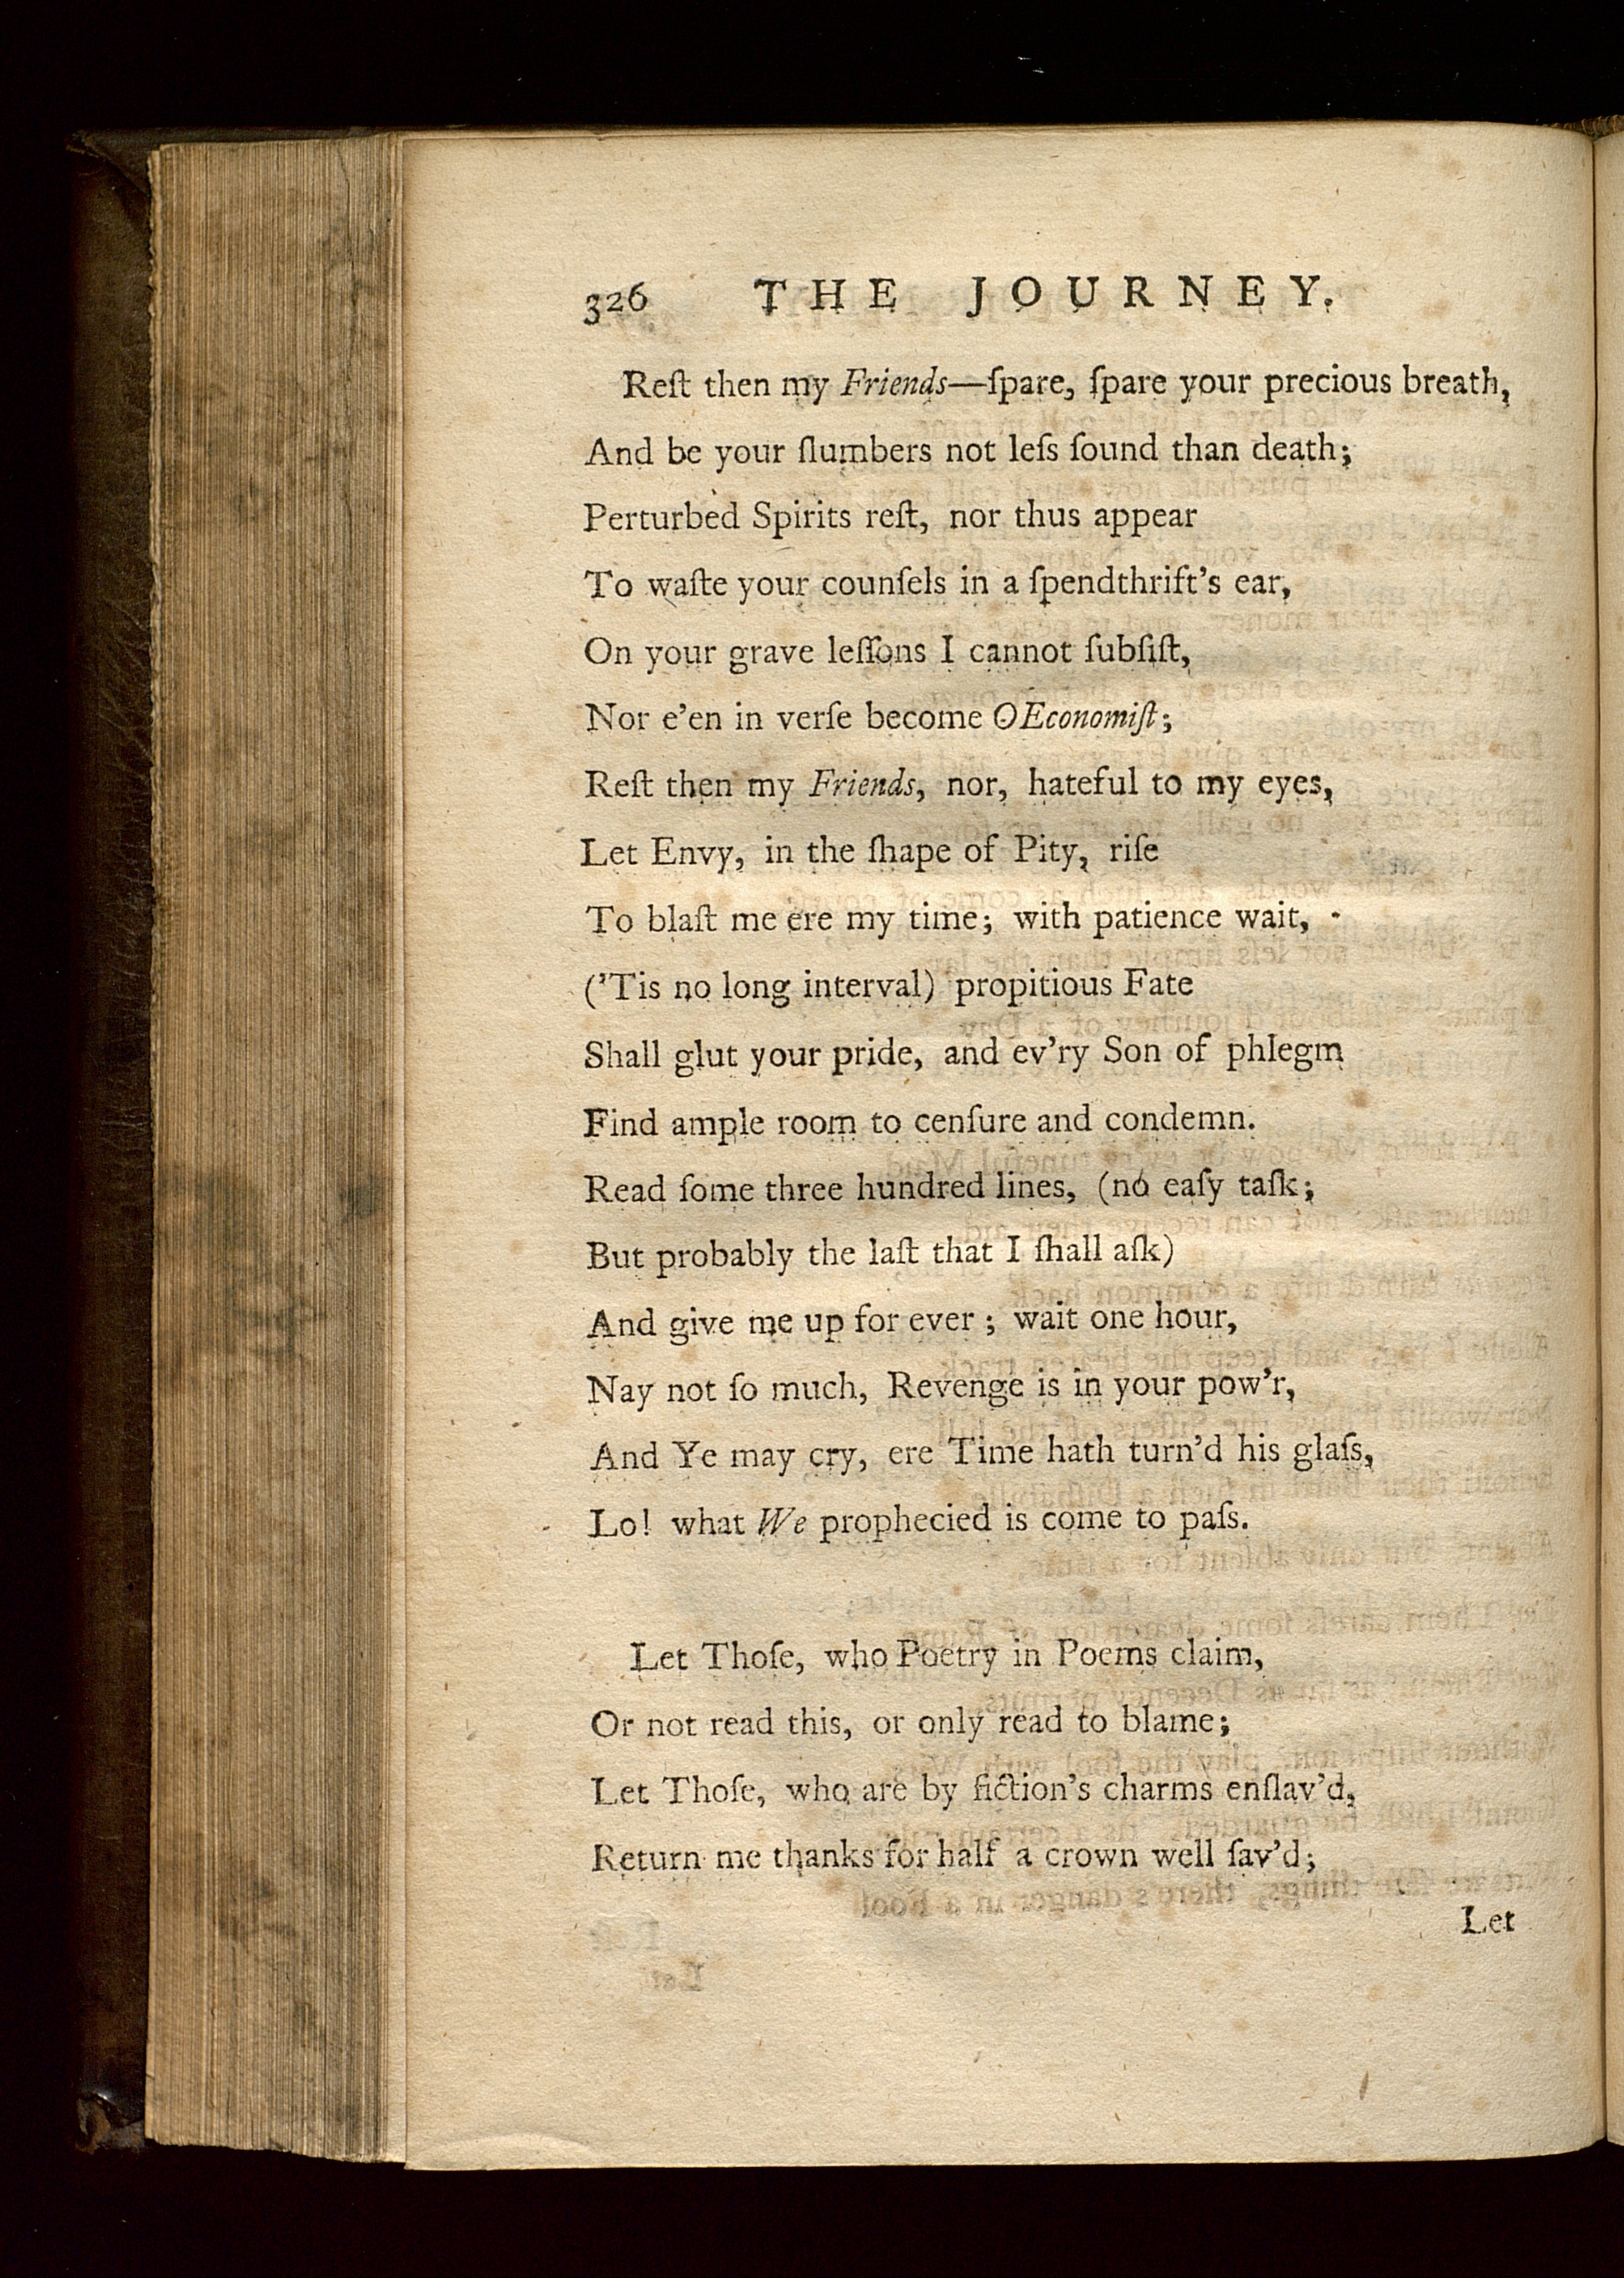 326 THE JOURNEY.
Reſt then my Friends—ſpare, ſpare your precious breath,
And be your ſlumbers not leſs ſound than death;
Perturbed Spirits reſt, nor thus appear
To waſte your counſels in a ſpendthrift's ear,
On your grave leſſons I cannot ſubſiſt,
Nor e'en in verſe become OEconomiſt;
Reſt then my Friends, nor, hateful to my eyes,
Let Envy, in the ſhape of Pity, riſe
To blaſt me ere my time; with patience wait,
('Tis no long interval) propitious Fate
Shall glut your pride, and ev'ry Son of phlegm
Find ample room to cenſure and condemn.
Read ſome three hundred lines, (no eaſy taſk;
But probably the laſt that I ſhall aſk)
And give me up for ever; wait one hour,
Nay not ſo much, Revenge is in your pow'r,
And Ye may cry, ere Time hath turn'd his glaſs,
Lo! what We prophecied is come to paſs.
Let Thoſe, who Poetry in Poems claim,
Or not read this, or only read to blame;
Let Thoſe, who are by fiction's charms enſlav'd,
Return me thanks for half a crown well ſav'd;
Let